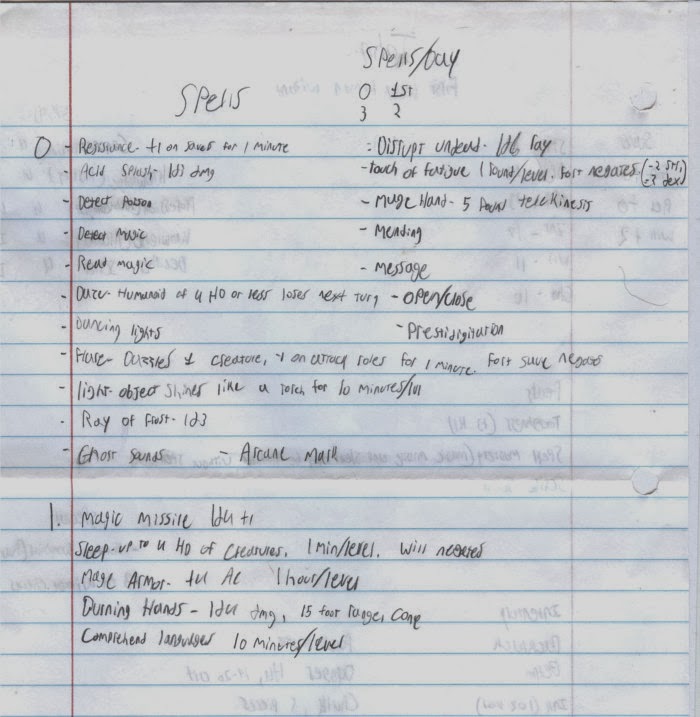 Spells/Day
Spells 0 1st
3 2
0 - Resistance- +1 on saves for 1 minute - Disrupt undead- 1d6 ray
- Acid Splash- 1d3 dmg - touch of fatigue 1 round/level. Fort negates (-2 str,
- Detect Poison - Mage Hand- 5 pound telekinesis
- Detect Magic - Mending
- Read magic - message
- Daze- Humanoid of 4 HD or less loses next turn - open/close
- Dancing lights - Prestidigitation
- Flare- Dazzles 1 creature, -1 on attack roles for 1 minute. Fort save negates
- light- object shines like a torch for 10 minutes/lvl
- Ray of Frost- 1d3
- Ghost sounds - Arcane Mark
1. Magic Missile 1d4 +1
Sleep- up to 4 HD of creatures. 1 min/level. Will negates
Mage Armor- +4 AC 1 hour/level
Burning Hands - 1d4 dmg, 15 foot range, cone
Comprehend languages 10 minutes/level